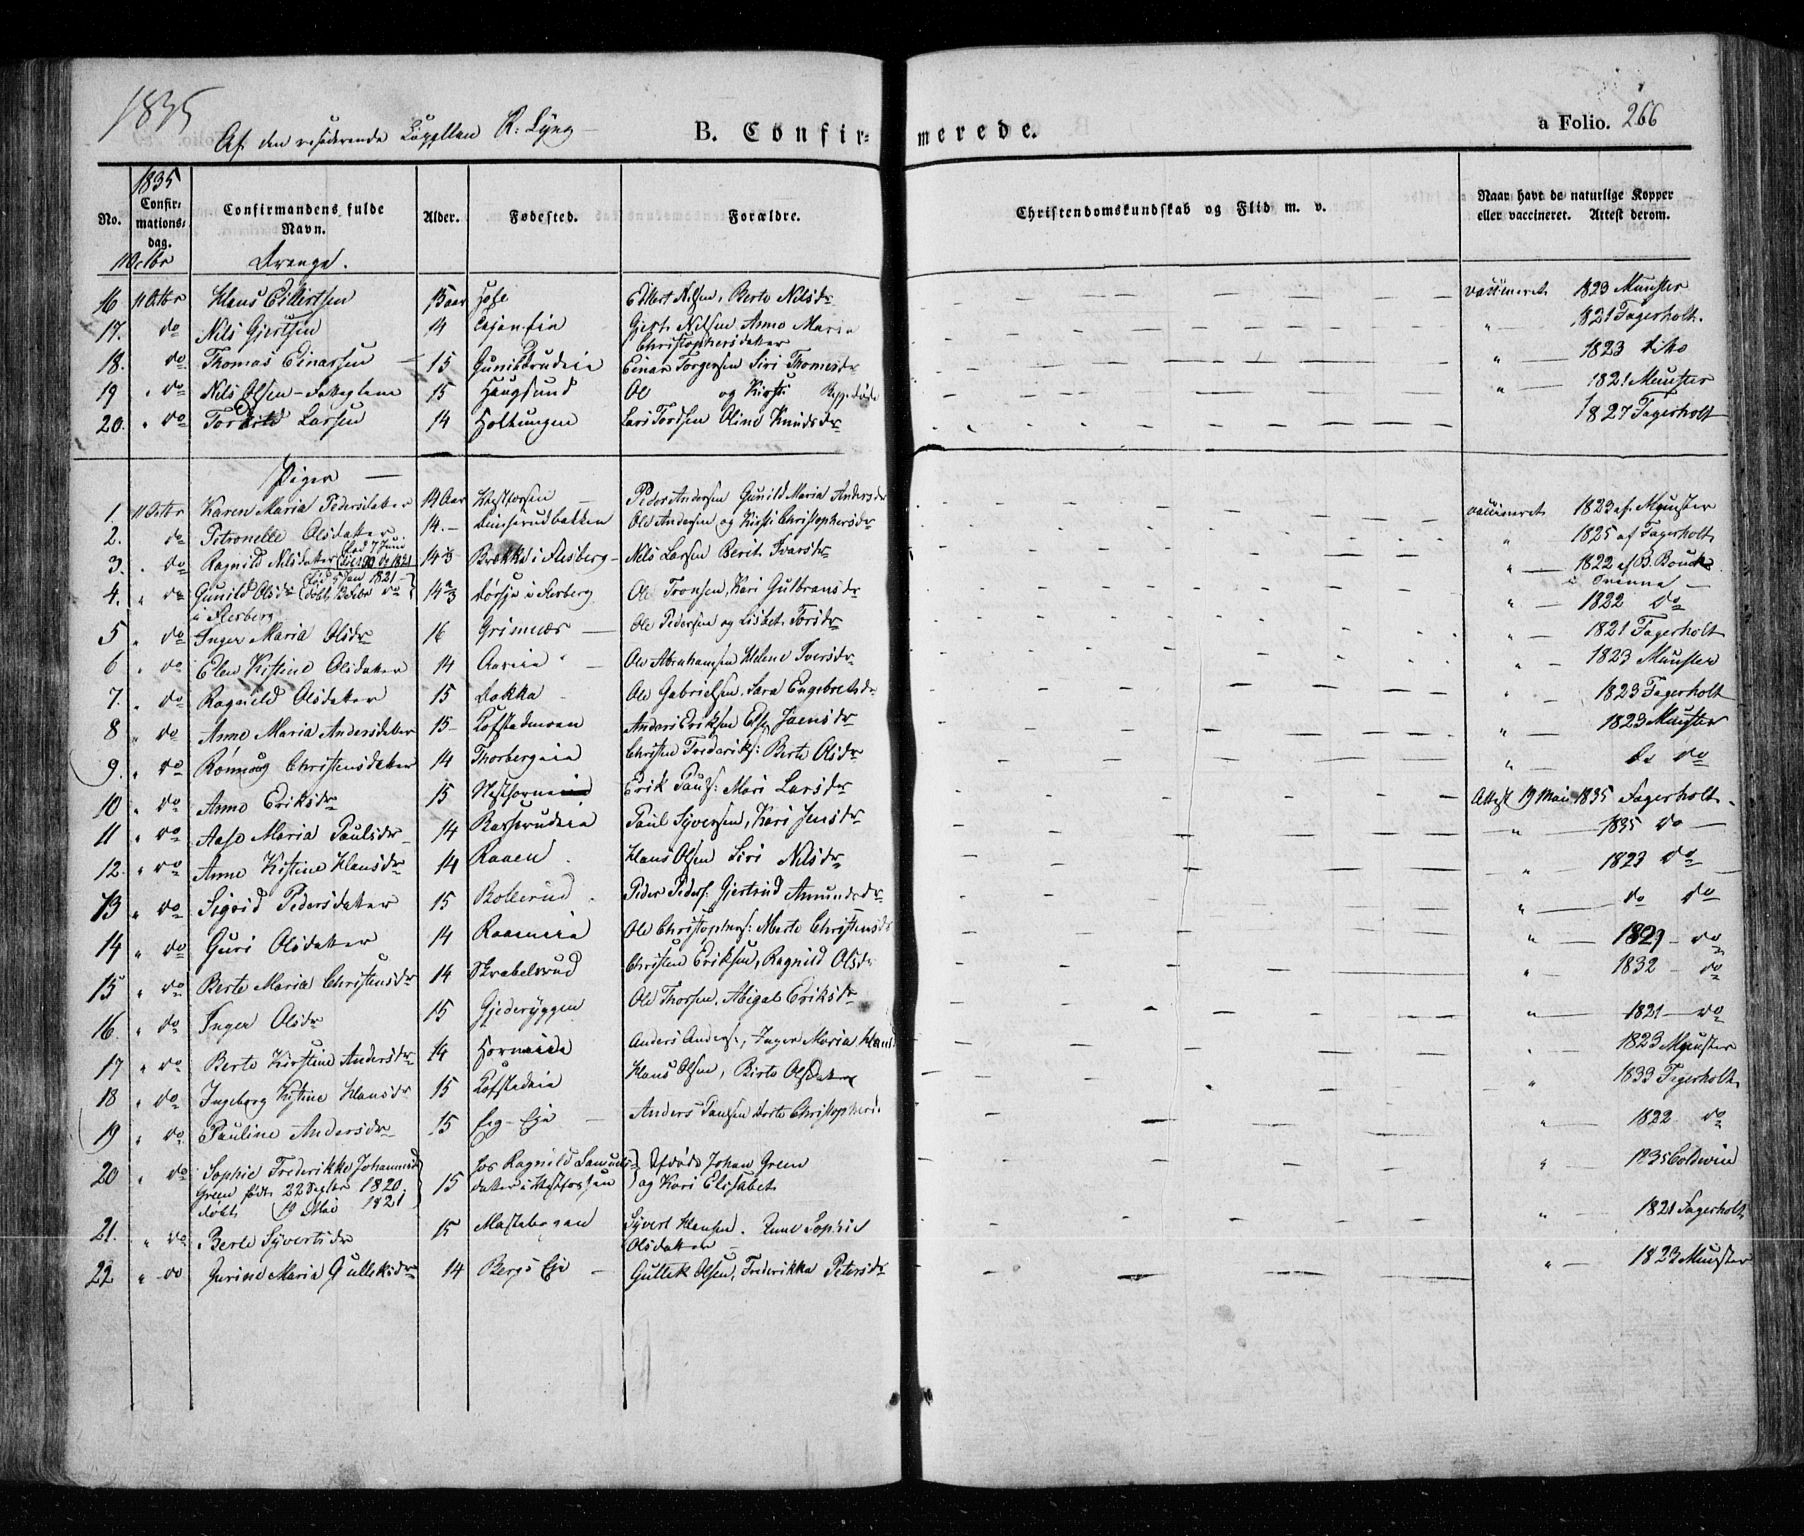 1835
Af den residerende Cappellan R. Lyng
B. Confirmerede.
a Folio. 266
No. 1835 Confirmationsdag. Confirmandens fulde Navn. Alder. Fødested. Forældre. Christendomskundskab og Flid m. v. Naar havt de naturlige Kopper eller vaccineret. Attest derom.
11 Octbr Drenge.
16 11 Octbr Hans Eilertsen 15 aar Eilert Nilsen, Berte Nilsdr vaccineret 1823 Munster
17. do Nils Gjertsen 14 Gjert Nilsen Anne Maria Christophersdater " 1821 Fagerholt.
18. do Thomas Einarsen 15 Einar Torgersen Siri Thomesdr " 1823 dito
19 do Nils Olsen 15 Haugsund Ole og Kirsti " 1821 Munster
20. do Larsen 14 Holtungen Lars Tordsen Oline Knudsdr 1827 Fagerholt
Piger
1. 11 Octbr Karen Maria Pedersdater 14 Aar Vestfossen Peder Andersen Gunild Maria Andersdr vaccineret 1823 af Munster
2. do Petronelle Olsdater 14. Ole Andersen og Kirsti Christophersdr " 1825 af Fagerholt
3. do Ragnild Nilsdater fød 7 Juni 1821 14 1/3 Brække i Flesberg Nils Larsen Berit Ivarsdr " 1822 af B. Bouck
4. do Gunild Olsdr fød 5 Jan 1821 døbt do i Flesberg 14 2/3 i Flesberg Ole Tronsen, Kari Gulbransdr " 1822 do
5 do Inger Maria Olsdr 16 Grimnæs Ole Pedersen og Lisbet Torsdr " 1821 Fagerholt
6 do Elen Kistine Olsdater 14 Ole Abrahamsen Helene Iversdr " 1823 Munster
7. do Ragnild Olsdater 15 Løkka Ole Gabrielsen, Sara Engebretsdr " 1823 Fagerholt
8 do Anne Maria Andersdater 15 Anders Eriksen Else Jensdr " 1823 Munster
9. do Rønnoug Christensdater 14 Thorbergeie Christen Frederiks: Berte Olsdr " do
10 do Anne Eriksdr 15 Erik Pauls: Mari Larsdr Attest 19 Mai 1835 Fagerholt
11 do Aase Maria Paulsdr 14 Paul Syversen, Kari Jensdr " 1835 do
12. do Anne Kistine Hansdr 14 Raaen Hans Olsen Siri Nilsdr " 1823 do
13 do Sigrid Pedersdater 15 Bollerud Peder Peders: Gjertrud Amundsdr " do do
14 do Guri Olsdater 14 Raaeneie Ole Christophers: Merte Christensdr " 1829 do
15 do Berte Maria Christensdr 14 Skrabelsrud Christen Eriksen, Ragnild Olsdr " 1832 do
16. do Inger Olsdr 15 Gjederyggen Ole Thorsen, Abigal Eriksdr " 1821 do
17 do Berte Kirstine Andersdr 14 Horneeie Anders Anders:, Inger Maria Hans " 1823 Munster
18 do Ingeborg Kistine Hansdr 15 Hofstadeie Hans Olsen, Birte Olsdater " 1833 Fagerholt
19 do Pauline Andersdr 15 Anders Paulsen Dorte Christophers. " 1822 do
20 do Sophie Frederikke Johannesd Green født 22 Septbr 1820. døbt 19 Mai 1821 15 hos Ragnild Samuelsdater i Vestfossen Afdøde Johan Green og Kari Elisabet " 1835 Coldevin
21. do Berte Syvertsdr 15 Mastebogen Syvert Hansen. Anne Sophie Olsdatter " 1821 Fagerholt
22 do Gurine Maria Gulleksdr 14 Bergs Eje Gullek Olsen, Frederikka Petersdr " 1823 Munster